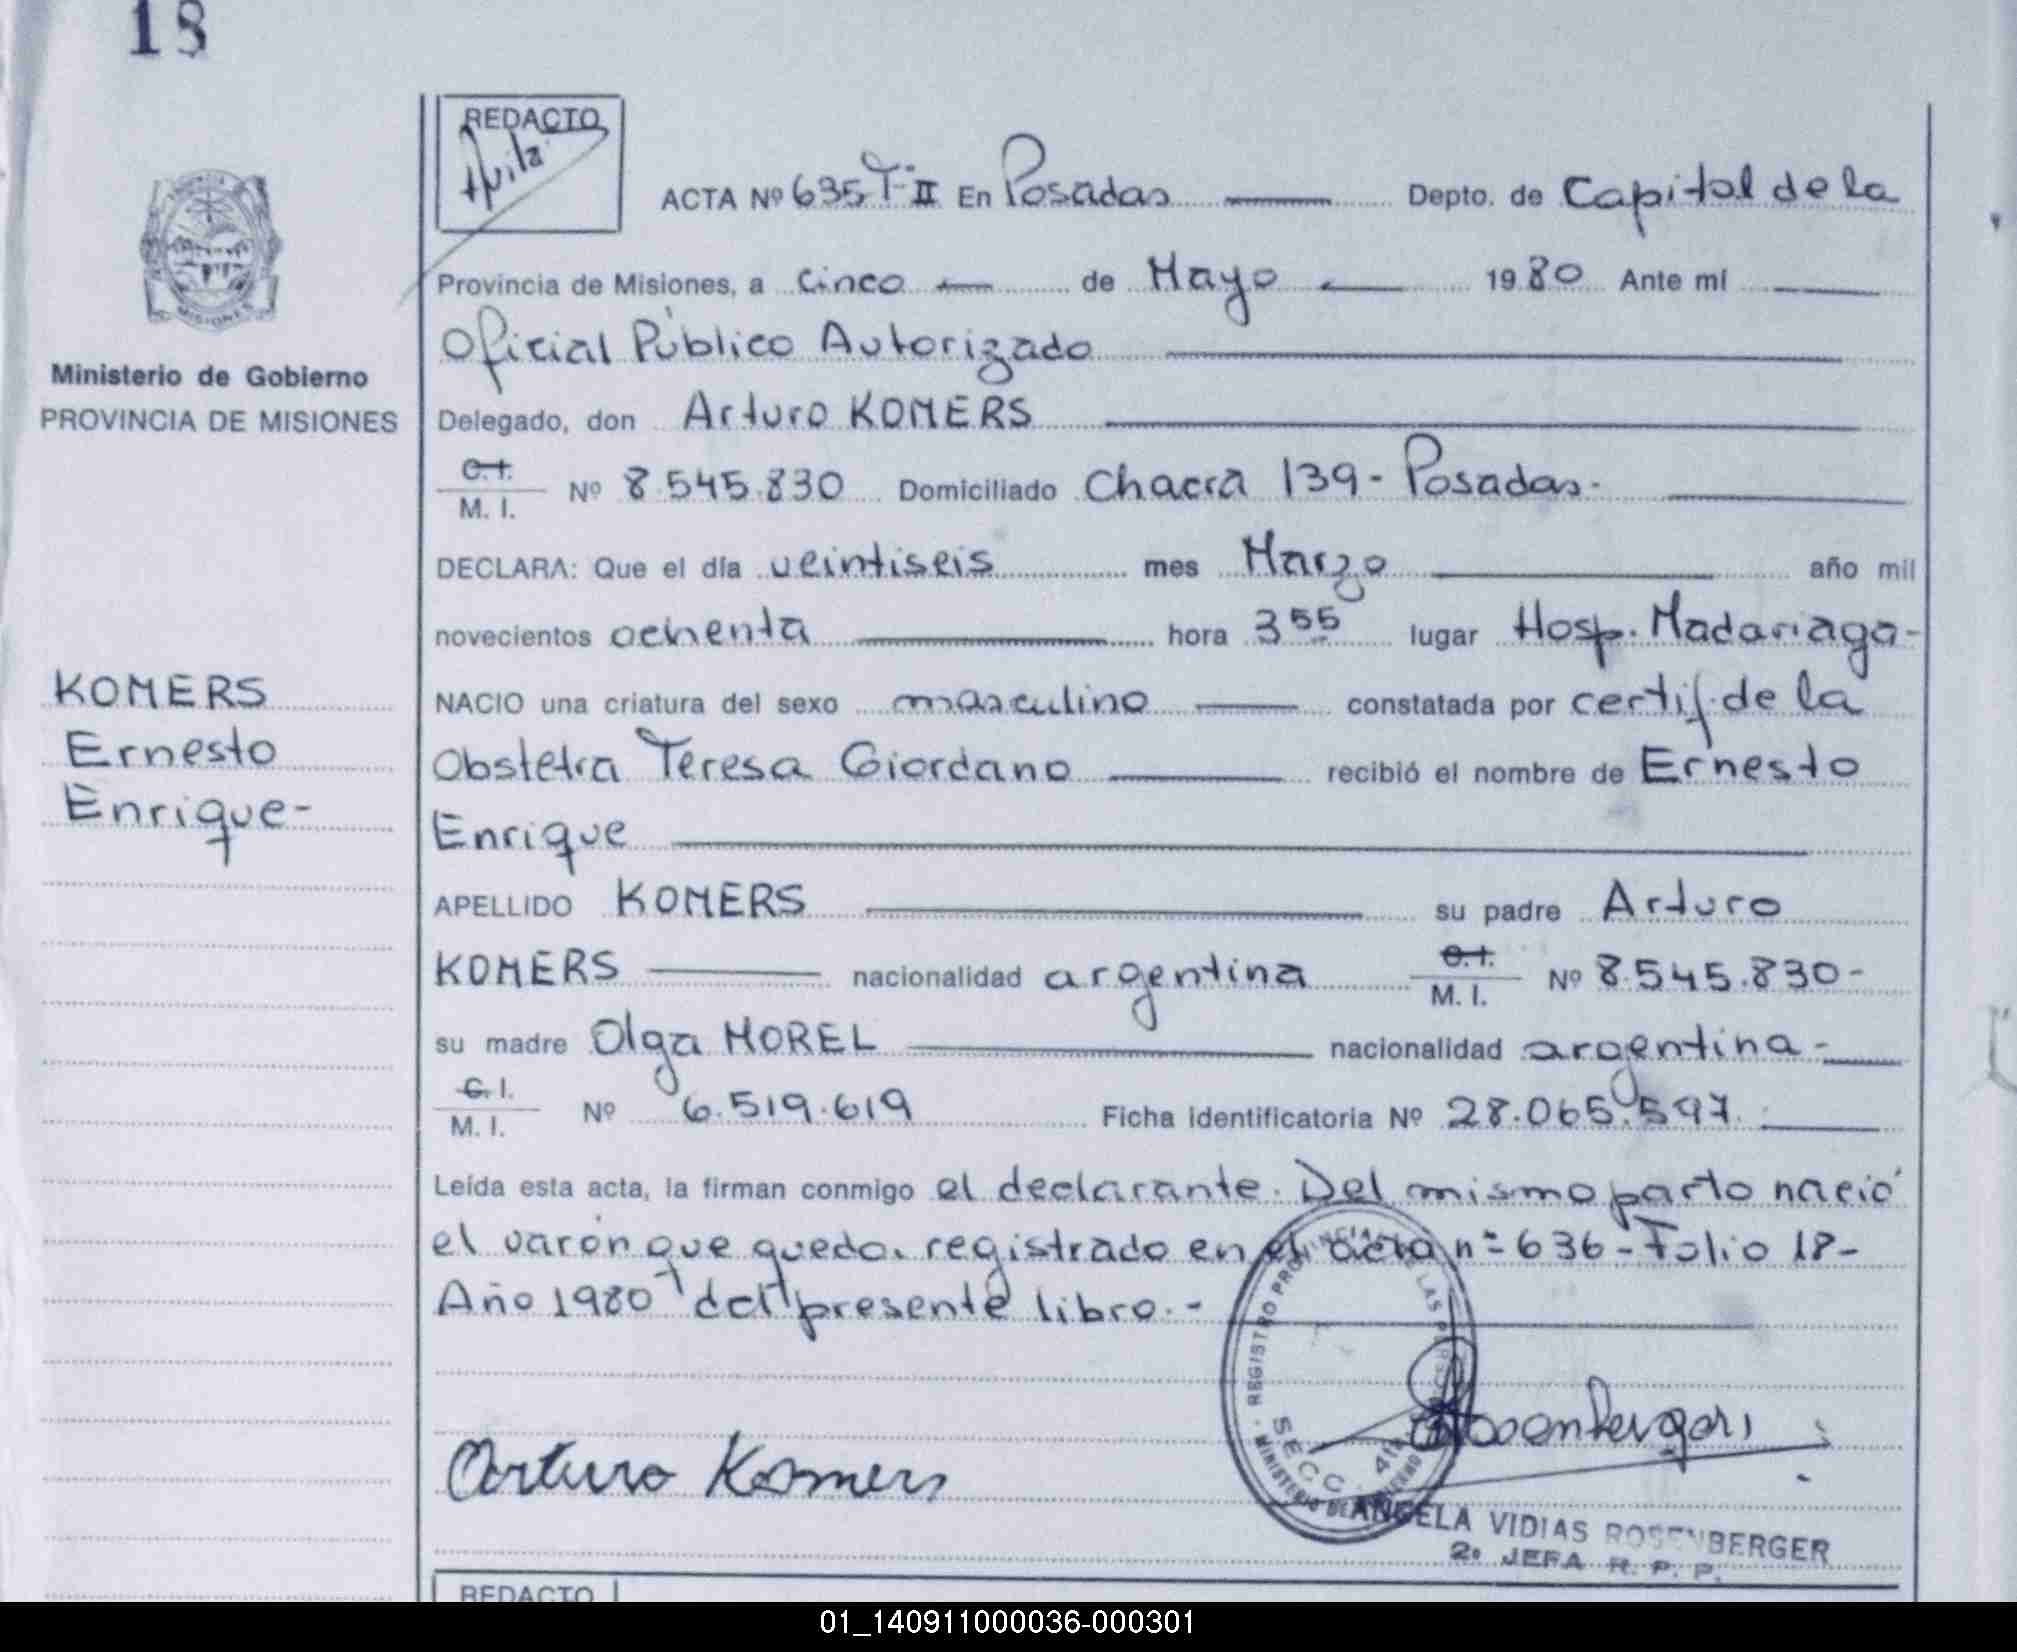 18
REDACTO
Avila
ACTA Nº 635 T- II En Posadas Depto. de Capital de la
Provincia de Misiones, a cinco de Mayo 1980 Ante mí
Oficial Público Autorizado
Ministerio de Gobierno
PROVINCIA DE MISIONES
Delegado, don Arturo KOMERS
C.I.
M. I. Nº 8.545.830 Domiciliado Chacra 139- Posadas.
DECLARA: Que el día veintiseis mes Marzo año mil
novecientos ochenta hora 3 55 lugar Hosp. Madariaga-
KOMERS
Ernesto
Enrique-
NACIO una criatura del sexo masculino constatada por certif. de la
Obstetra Teresa Giordano recibió el nombre de Ernesto
Enrique
APELLIDO KOMERS su padre Arturo
KOMERS nacionalidad argentina C.I. M. I. Nº 8.545.830-
su madre Olga MOREL nacionalidad argentina-
C.I.
M. I. Nº 6.519.619 Ficha identificatoria Nº 28.065.597.
Leída esta acta, la firman conmigo el declarante. Del mismo parto nació
el varón que queda registrado en el acta nº 636- Folio 18-
Año 1980 del presente libro.-
REGISTRO PROVINCIAL DE LAS
SECC. 4ta.
MINISTERIO DE GOBIERNO
Arturo Komers
Rosenberger
ANGELA VIDIAS ROSENBERGER
2º JEFA R. P. P.
REDACTO
01_140911000036-000301